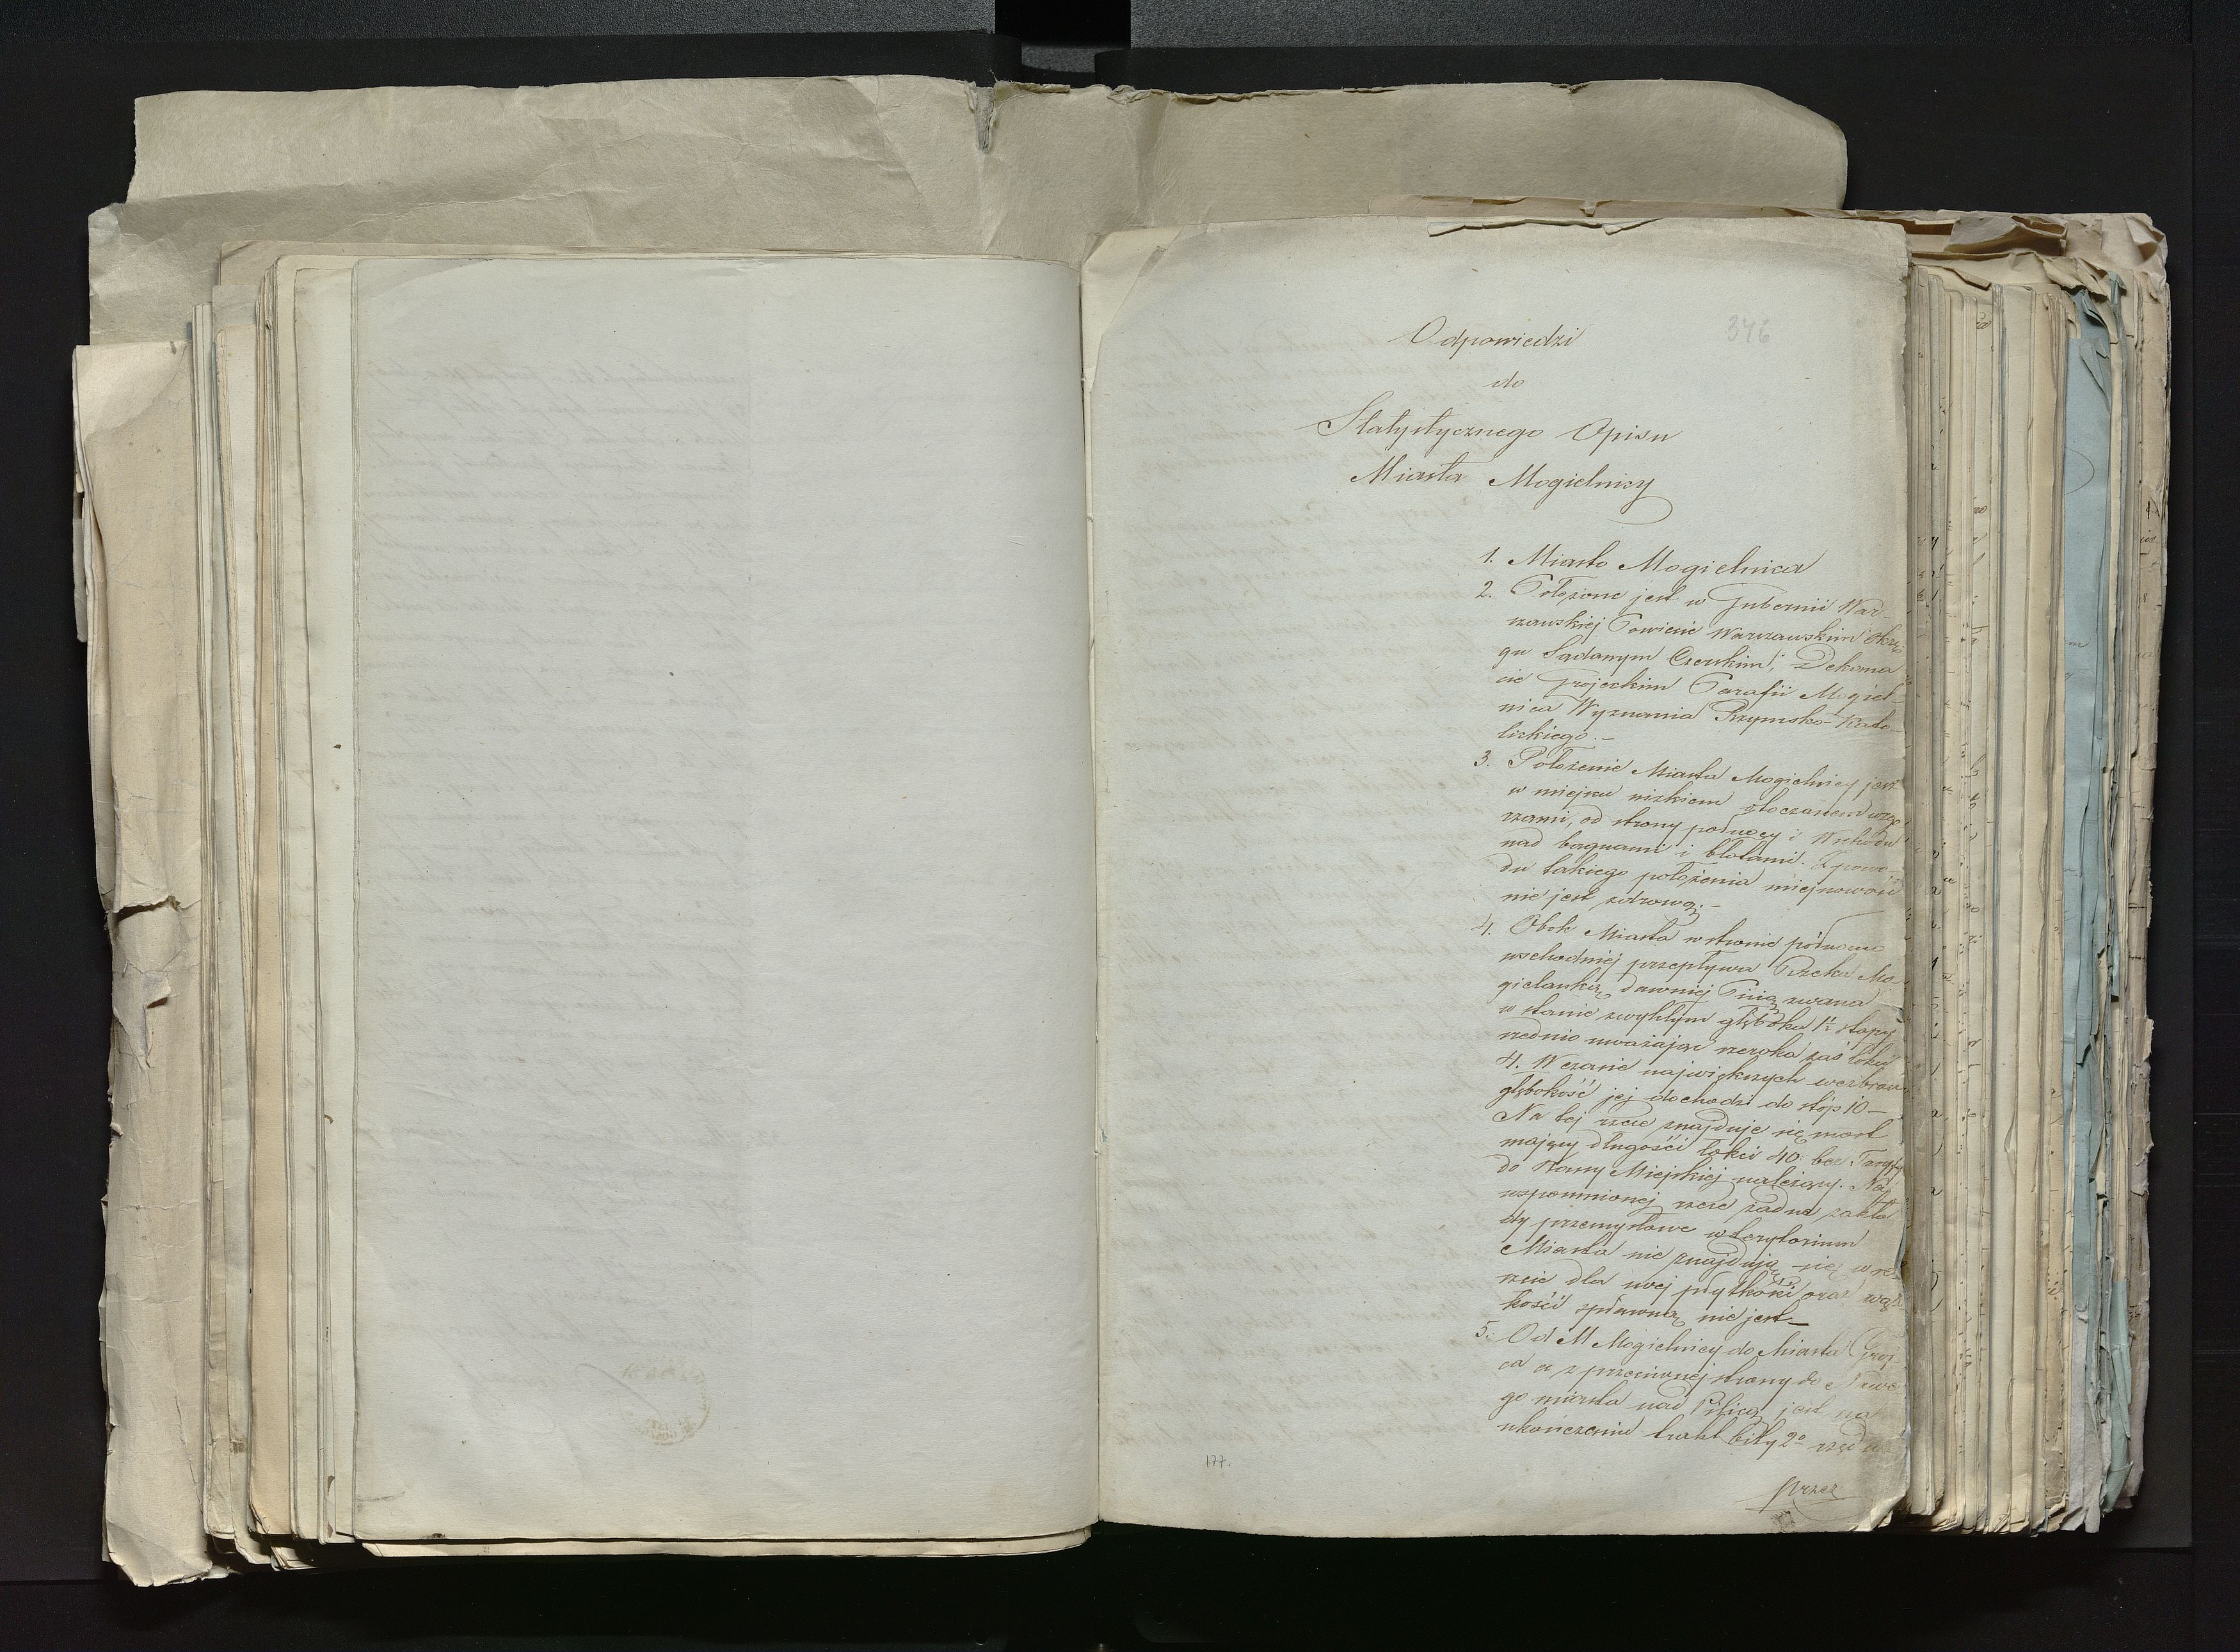 376
Odpowiedzi
do
Statystycznego Opisu
Miasta Mogielnicy
1. Miasto Mogielnica
2. Położone jest w Gubernii War-
szawskiej Powiecie Warszawskim Okrę
gu Sądowym Czerskim, Dekana
cie Grojeckim Parafii Mogiel-
nica Wyznania Rzymsko-Kato-
lickiego.-
3. Położenie Miasta Mogielnicy jest
w miejscu nizkiem otoczonem wzgó
rzami, od strony północy i Wschodu
nad bagnami i błotami. Z powo-
du takiego położenia miejscowość
nie jest zdrową.-
4. Obok Miasta w stronie północno
wschodniej przepływa Rzeka Mo-
gielanką dawniej zwana
w stanie zwykłym głęboka 1½ stopy
średnio uważając szeroka zaś łokci
4. W czasie największych wezbrań
głębokość jej dochodzi do stóp 10-
Na tej rzece znajduje się most
mający długości łokci 40 bez Taryfy
do Kassy Miejskiej należący. Na
wspomnionej rzece żadne zakła
dy przemysłowe w terytorium
Miasta nie znajdują się w re-
szcie dla swej płytkości oraz wąz
kości spławną nie jest-
5. Od M Mogielnicy do Miasta Grój-
ca a z przeciwnej strony do Nowe
go miasta nad Pilicą jest na
ukończeniu trakt bity 2o rzędu
przez
177.